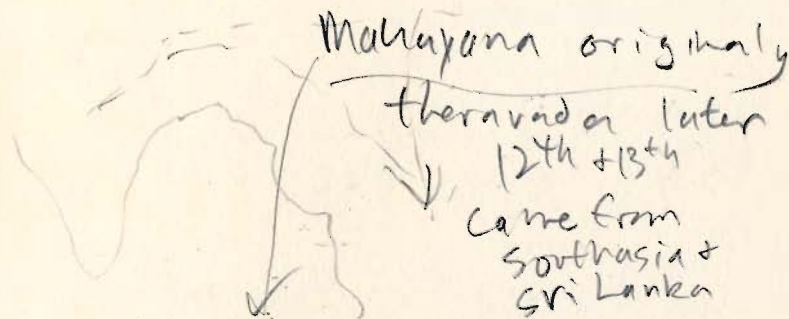 Mahayana originaly
theravada later
12th + 13th
came from
southasia +
sri Lanka